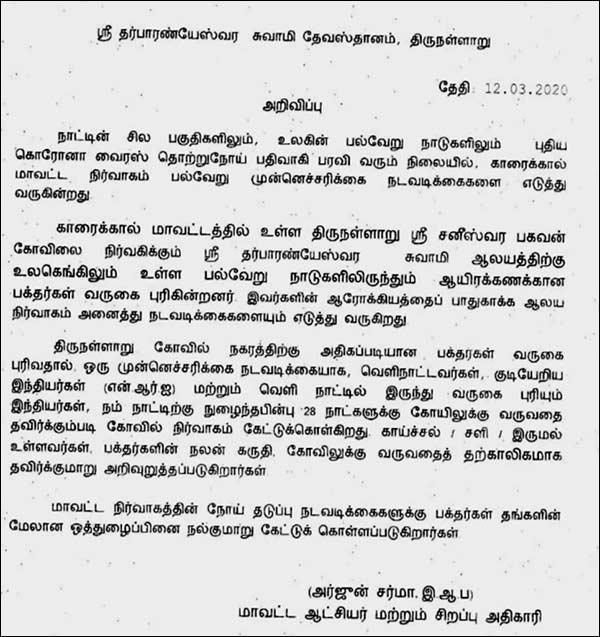 ஸ்ரீ தர்பாரண்யேஸ்வர சுவாமி தேவஸ்தானம், திருநள்ளாறு
தேதி: 12.03.2020
அறிவிப்பு
நாட்டின் சில பகுதிகளிலும், உலகின் பல்வேறு நாடுகளிலும் புதிய
கொரோனா வைரஸ் தொற்றுநோய் பதிவாகி பரவி வரும் நிலையில், காரைக்கால்
மாவட்ட நிர்வாகம் பல்வேறு முன்னெச்சரிக்கை நடவடிக்கைகளை எடுத்து
வருகின்றது.
காரைக்கால் மாவட்டத்தில் உள்ள திருநள்ளாறு ஸ்ரீ சனீஸ்வர பகவன்
கோவிலை நிர்வகிக்கும் ஸ்ரீ தர்பாரண்யேஸ்வர சுவாமி ஆலயத்திற்கு
உலகெங்கிலும் உள்ள பல்வேறு நாடுகளிலிருந்தும் ஆயிரக்கணக்கான
பக்தர்கள் வருகை புரிகின்றனர். இவர்களின் ஆரோக்கியத்தைப் பாதுகாக்க ஆலய
நிர்வாகம் அனைத்து நடவடிக்கைகளையும் எடுத்து வருகிறது.
திருநள்ளாறு கோவில் நகரத்திற்கு அதிகப்படியான பக்தரகள் வருகை
புரிவதால், ஒரு முன்னெச்சரிக்கை நடவடிக்கையாக, வெளிநாட்டவர்கள், குடியேறிய
இந்தியர்கள் (என்.ஆர்.ஐ) மற்றும் வெளி நாட்டில் இருந்து வருகை புரியும்
இந்தியர்கள், நம் நாட்டிற்கு நுழைந்தபின்பு 28 நாட்களுக்கு கோயிலுக்கு வருவதை
தவிர்க்கும்படி கோவில் நிர்வாகம் கேட்டுக்கொள்கிறது. காய்ச்சல் / சளி / இருமல்
உள்ளவர்கள், பக்தர்களின் நலன் கருதி, கோவிலுக்கு வருவதைத் தற்காலிகமாக
தவிர்க்குமாறு அறிவுறுத்தப்படுகிறார்கள்.
மாவட்ட நிர்வாகத்தின் நோய் தடுப்பு நடவடிக்கைகளுக்கு பக்தர்கள் தங்களின்
மேலான ஒத்துழைப்பினை நல்குமாறு கேட்டுக் கொள்ளப்படுகிறார்கள்.
(அர்ஜுன் சர்மா, இ.ஆ.ப)
மாவட்ட ஆட்சியர் மற்றும் சிறப்பு அதிகாரி